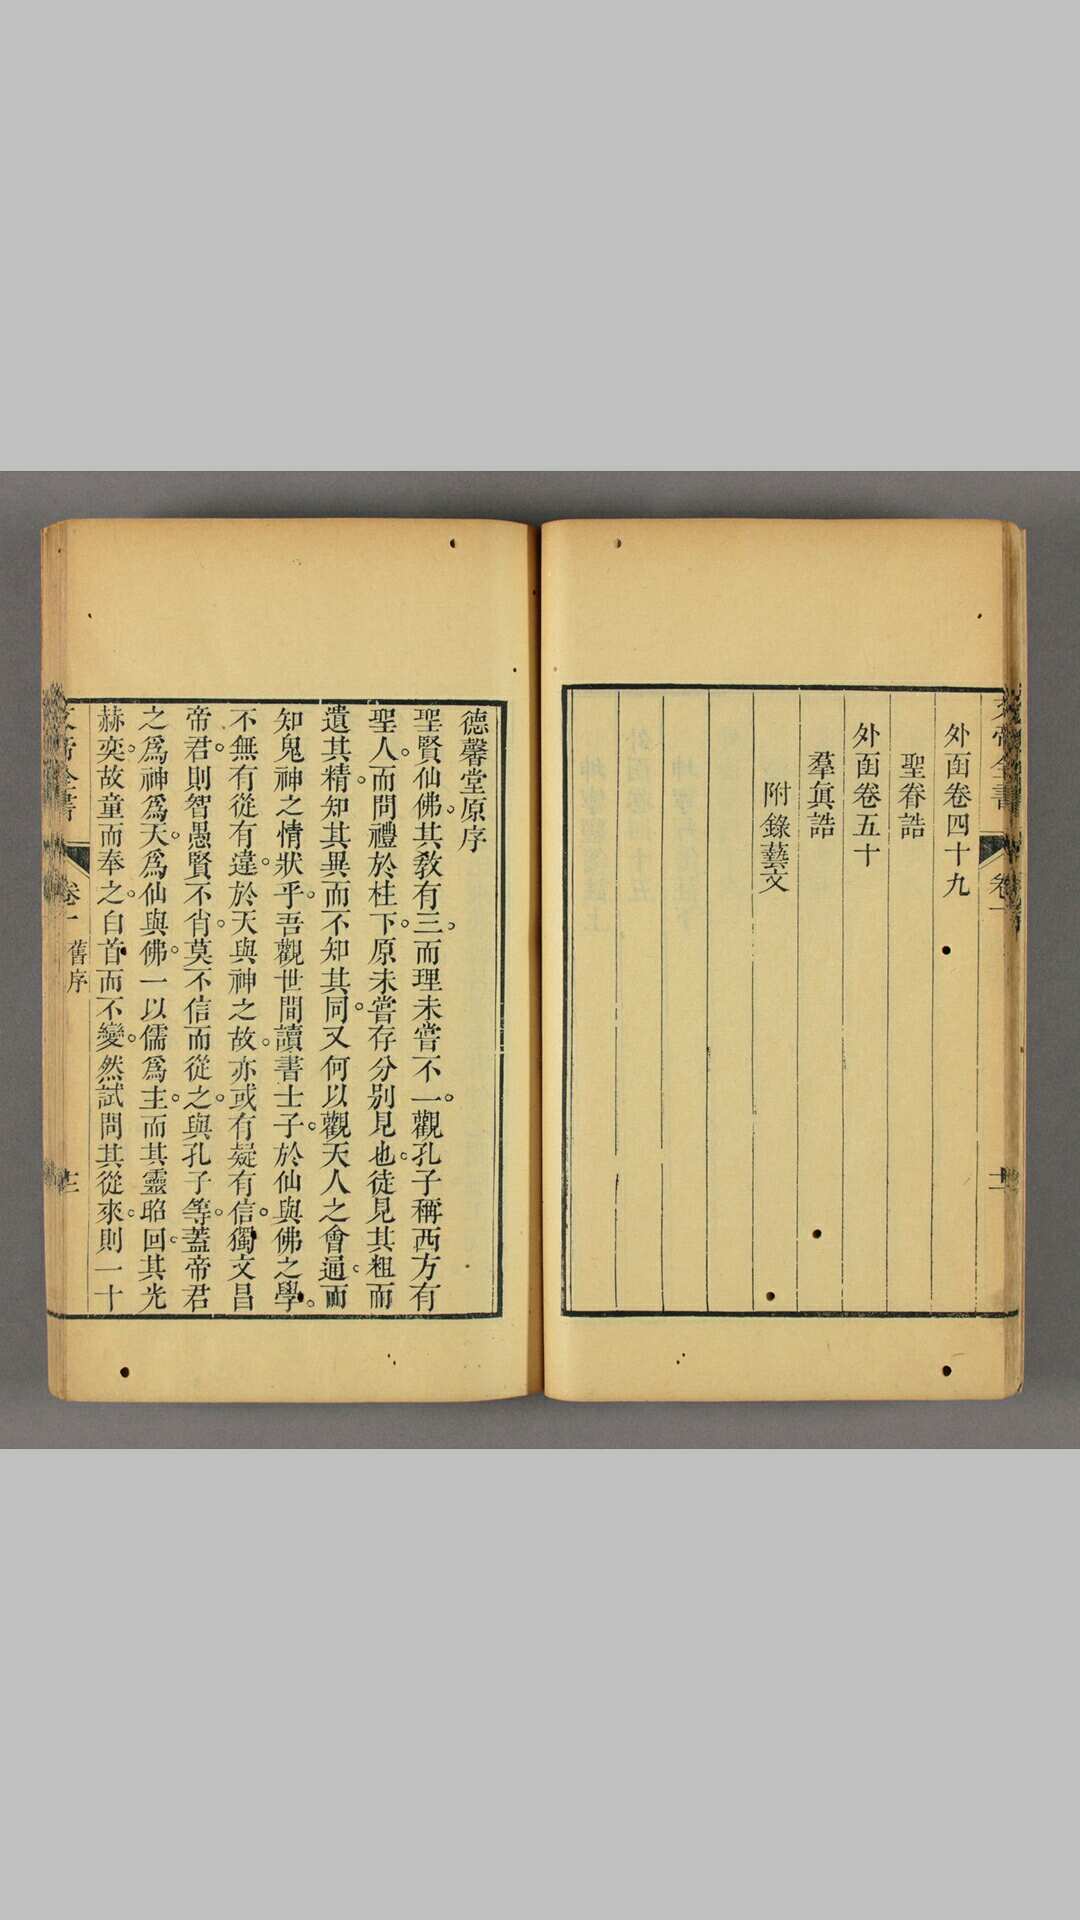 外函卷四十九
聖眷誥
外函卷五十
羣眞誥
附錄藝文
德馨堂原序
聖賢仙佛。其敎有三。而理未嘗不一。觀孔子稱西方有
聖人。而問禮於柱下。原未嘗存分別見也。徒見其粗而
遺其精。知其異而不知其同。又何以觀天人之會通。而
知鬼神之情狀乎。吾觀世間讀書士子。於仙與佛之學。
不無有從有違。於天與神之故。亦或有疑有信。獨文昌
帝君。則智愚賢不肖。莫不信而從之。與孔子等。蓋帝君
之爲神爲天。爲仙與佛。一以儒爲主。而其靈昭回。其光
赫奕。故童而奉之。白首而不變。然試問其從來。則一十
文帝全書
卷一
舊序